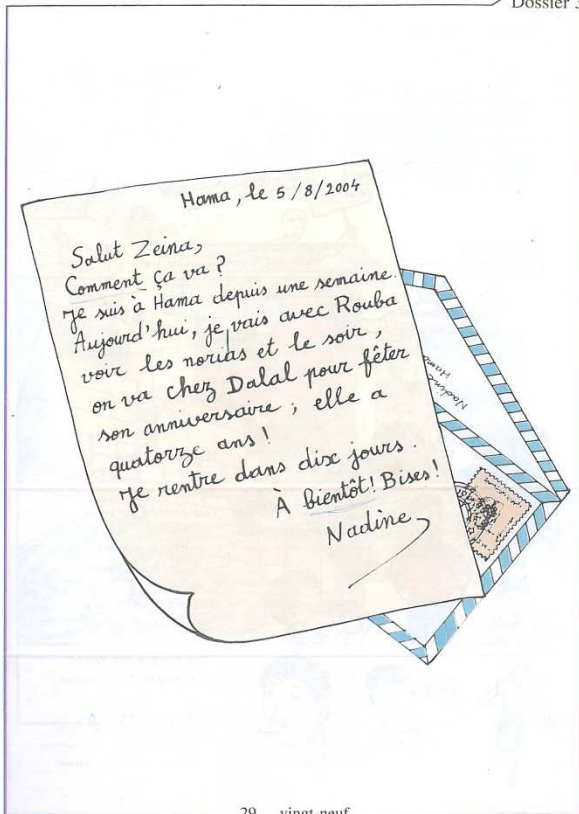 Dossier 3
Hama, le 5/8/2004
Salut Zeina,
Comment ça va ?
Je suis à Hama depuis une semaine.
Aujourd'hui, je vais avec Rouba
voir les norias et le soir,
on va chez Dalal pour fêter
son anniversaire ; elle a
quatorze ans !
Je rentre dans dix jours.
À bientôt ! Bises !
Nadine
Nadine
Hama
29 vingt-neuf